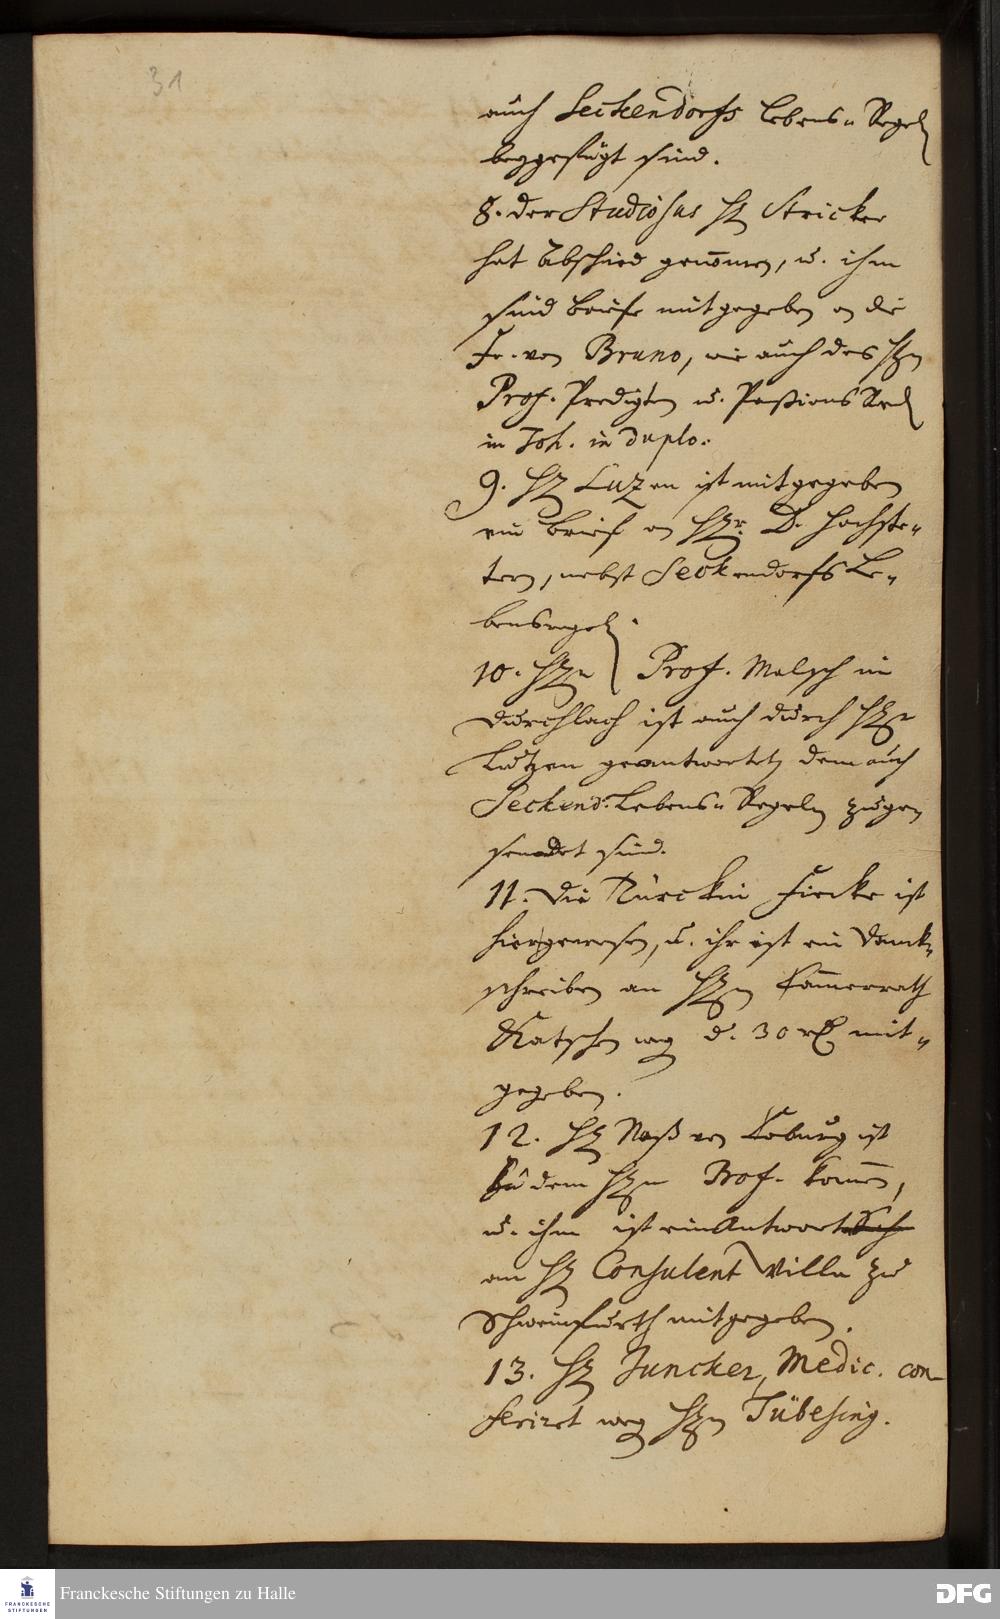 31
auch Seckendorfs Lebens-Regeln
beygefügt sind.
8. der Studiosus H. Stricker
hat Abschied genommen, u. ihm
sind briefe mitgegeben an die
Fr. von Bruno, wie auch des H.
Prof. Predigten u. Passions Red
in Joh. in duplo.
9. H. Luzen ist mitgegeben
ein brief an H. D. Hochste-
tern, nebst Seckendorfs Le-
bensregeln.
10. H. Prof. Malsch in
Durchlach ist auch durch H.
Lutzen geantwortet, dem auch
Seckend. Lebens-Regeln zuge
sendet sind.
11. die Türckin Fiecke ist
hier gewesen, u. ihr ist ein Danck-
schreiben an H. Cammerrath
Katschen weg d. 30 rth mit-
gegeben.
12. H. Naß von Coburg ist
zu dem H. Prof. kommen,
u. ihm ist ein Antwort Sch
an H. Consulent Villn zu
Schweinfurth mitgegeben.
13. H. Juncker, Medic. con-
feriret weg H. Tübesing.
FRANCKESCHE STIFTUNGEN
Franckesche Stiftungen zu Halle
DFG